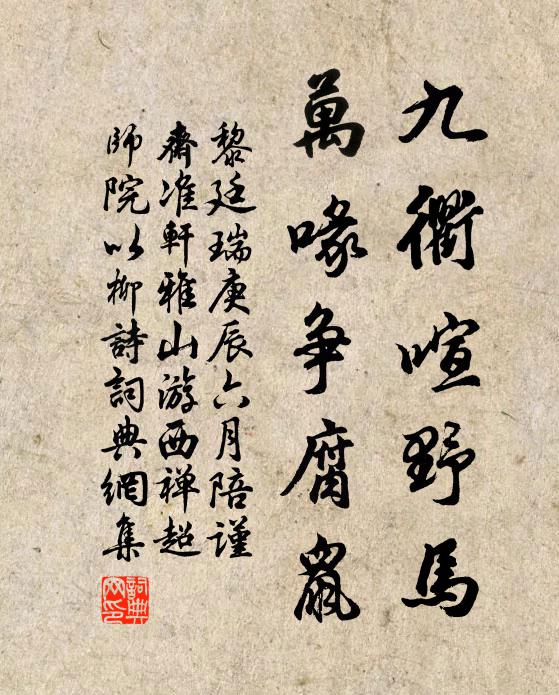 九衢喧野馬
萬喙争腐鼠
黎廷瑞庚辰六月陪谨
齋准軒雅山游西禅超
師院以柳詩詞典網集
詞典网印